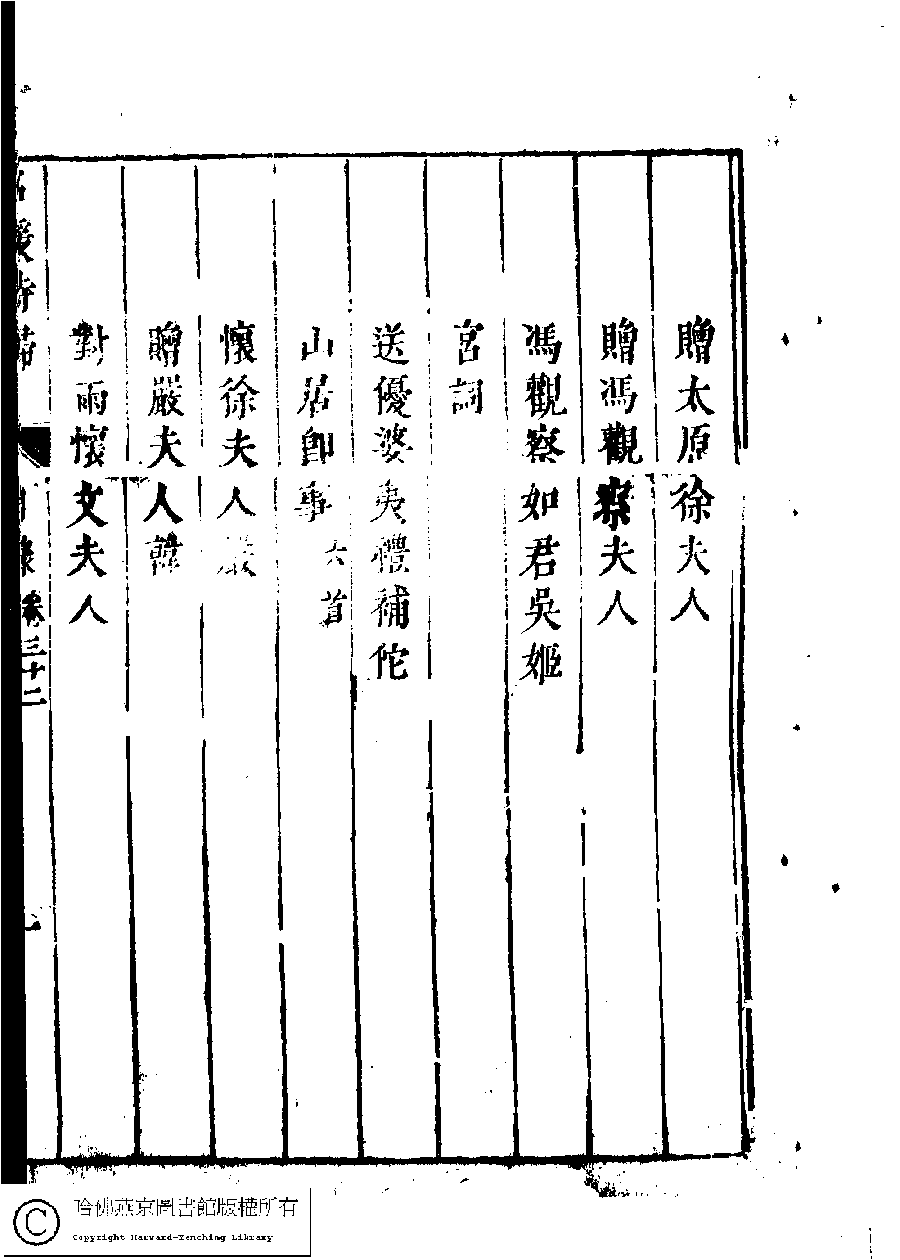 贈太原徐夫人
贈馮觀察夫人
馮觀察如君吳姬
宮詞
送優婆夷禮補佗
山居卽事六首
懷徐夫人
贈嚴夫人韓
對雨懷文夫人
卷三十二
哈佛燕京圖書館版權所有
Copyright Harvard-Yenching Library